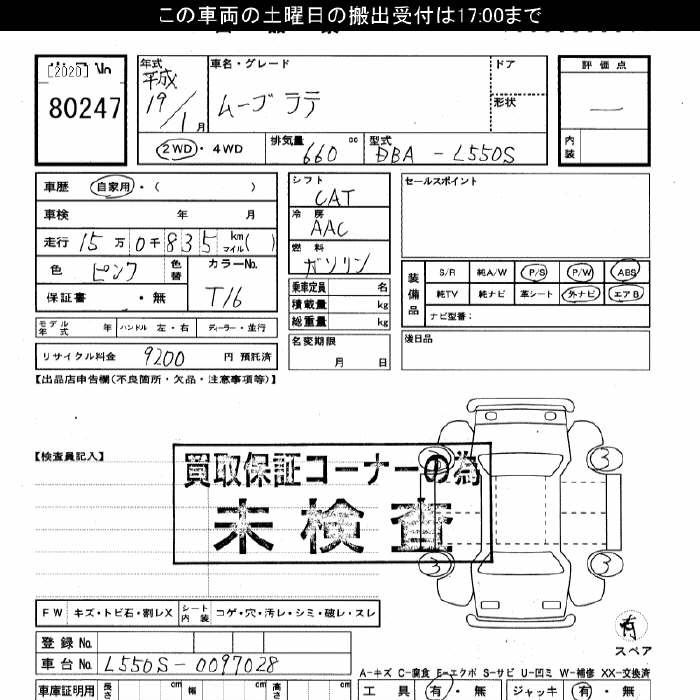 この車両の土曜日の搬出受付は17:00まで
[2020]
80247
年式 車名・グレード ドア
平成
19/1月 ムーブ ラテ
形状
評価点
—
内装
2WD・4WD 排気量 660 cc 型式 DBA-L550S
車歴 自家用・( )
車検 年 月
走行 15万0千835 km マイル( )
色 ピンク 色替 カラーNo. T16
保証書 ・無
モデル年式 年 ハンドル 左・右 ディーラー・並行
リサイクル料金 9200 円 預託済
シフト CAT
冷房 AAC
燃料 ガソリン
乗車定員 名
積載量 kg
総重量 kg
名変期限
月 日
セールスポイント
装備品
S/R 純A/W P/S P/W ABS
純TV 純ナビ 革シート 外ナビ エアB
ナビ型番:
後日品
【出品店申告欄(不良箇所・欠品・注意事項等)】
【検査員記入】
買取保証コーナーの為
未検査
3 3
3 3
有
スペア
FW キズ・トビ石・割レX シート内装 コゲ・穴・汚レ・シミ・破レ・スレ
登録No.
車台No. L550S-0097028
A-キズ C-腐食 E-エクボ S-サビ U-凹ミ W-補修 XX-交換済
車庫証明用 長さ cm 幅 cm 高さ cm
工具 有・無 ジャッキ 有・無